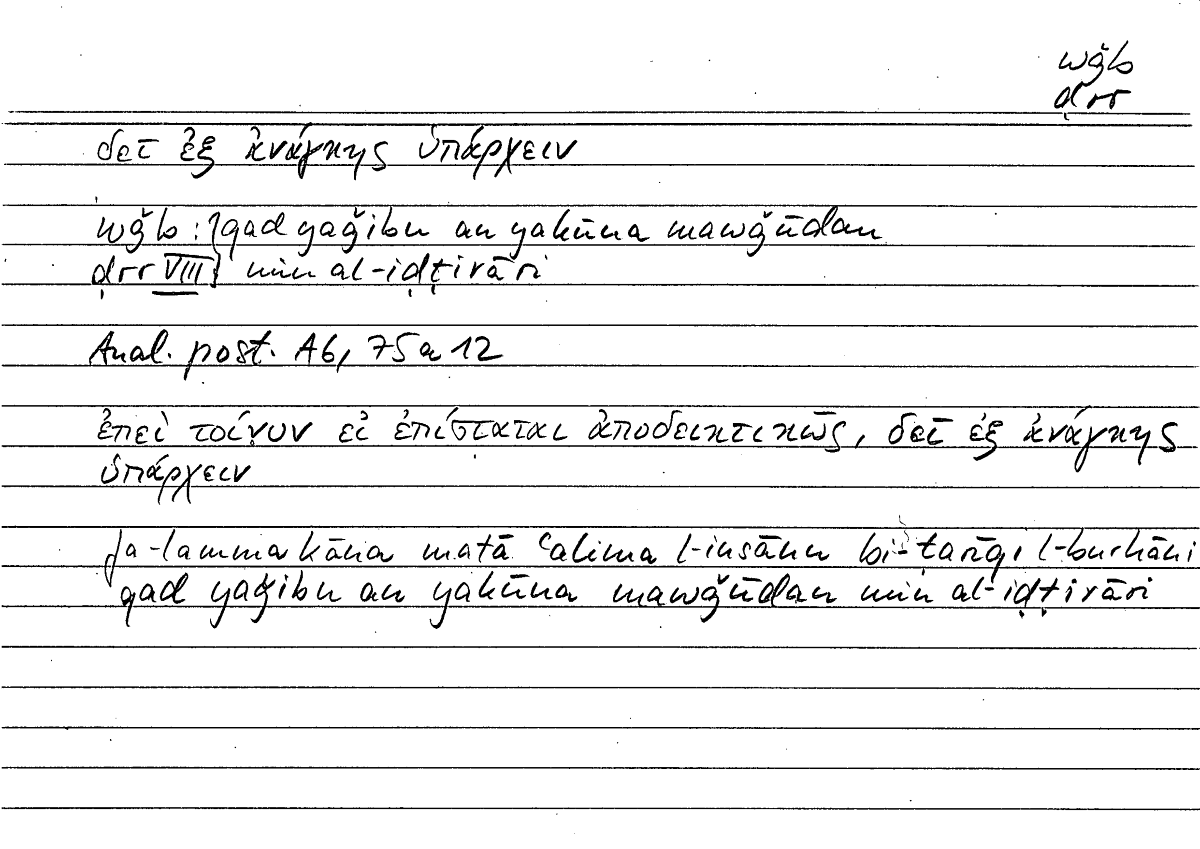 wǧb
ḍrr
δεῖ ἐξ ἀνάγκης ὑπάρχειν
wǧb : } qad yaǧibu an yakūna mawǧūdan
ḍrr VIII } min al-iḍṭirāri
Anal. post. A6, 75a12
ἐπεὶ τοίνυν εἰ ἐπίσταται ἀποδεικτικῶς, δεῖ ἐξ ἀνάγκης
ὑπάρχειν
fa-lamma kāna matā ʿalima l-insānu bi-ṭarīqi l-burhāni
qad yaǧibu an yakūna mawǧūdan min al-iḍṭirāri